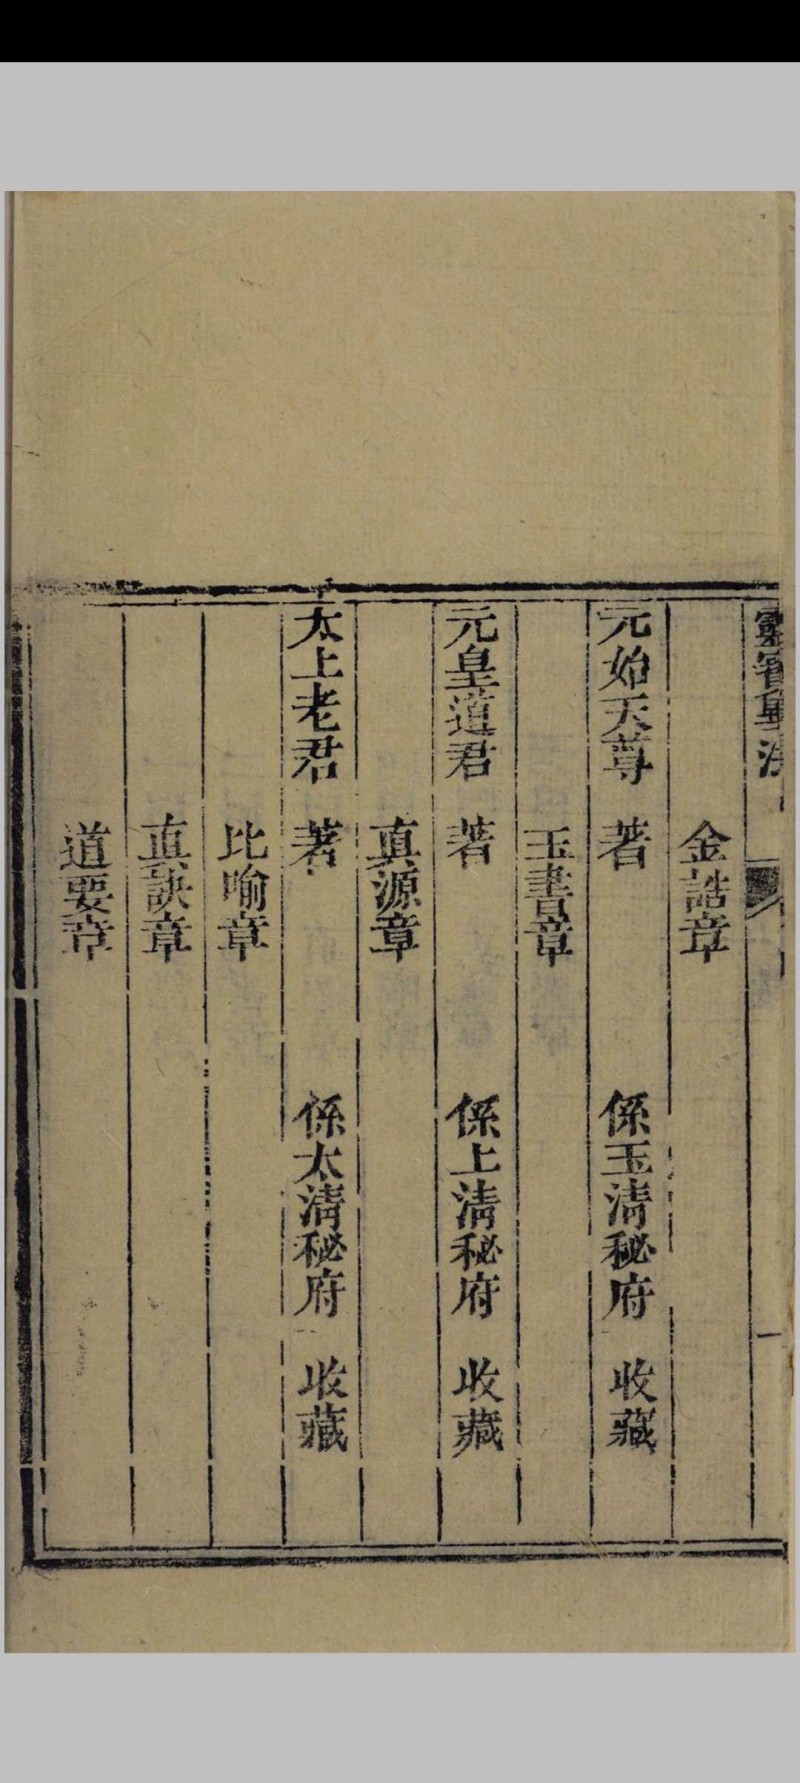 靈寳畢法
一
金誥章
元始天尊 著 係玉清秘府 收藏
玉書章
元皇道君 著 係上清秘府 收藏
真源章
太上老君 著 係太清秘府 收藏
比喻章
真訣章
道要章